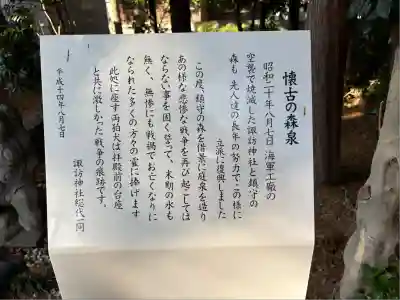 懐古の森泉
昭和二十年八月七日 海軍工廠の
空襲で焼滅した諏訪神社と鎮守の
森も 先人達の長年の努力でこの様に
立派に復興しました
この度、鎮守の森を借景に庭泉を造り
あの様な悲惨な戦争を再び起こしては
ならない事を固く誓って、末期の水も
無く、無惨にも戦禍でお亡くなりに
なられた多くの方々の霊に捧げます
此処に座す両狛犬は拝殿前の台座
と共に激しかった戦争の痕跡です。
平成十四年八月七日
諏訪神社総代一同